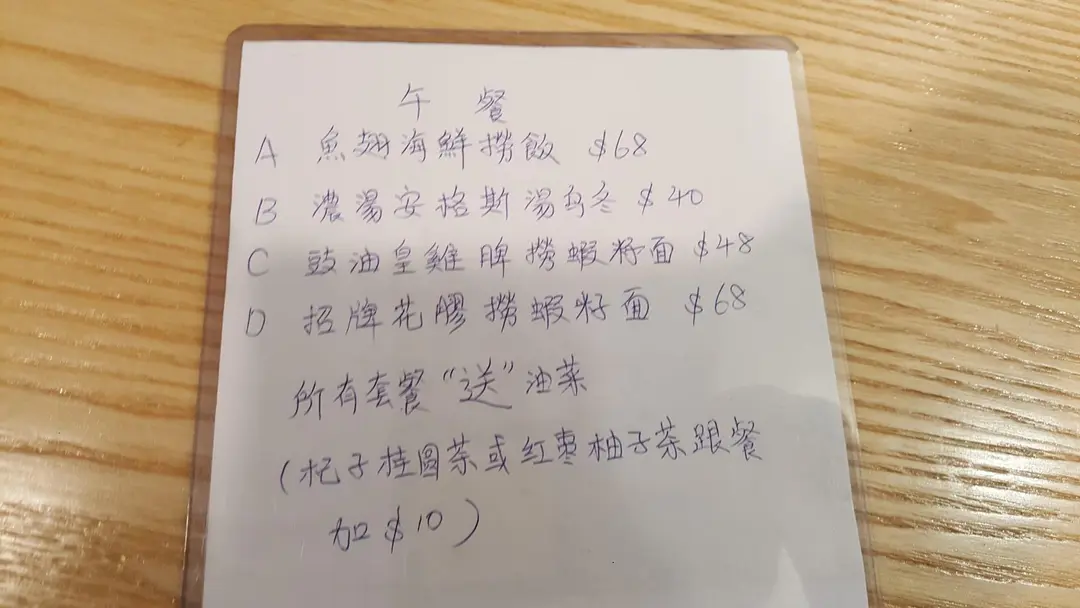 午餐
A 魚翅海鮮撈飯 $68
B 濃湯安格斯湯烏冬 $40
C 豉油皇雞髀撈蝦籽面 $48
D 招牌花膠撈蝦籽面 $68
所有套餐“送”油菜
(杞子桂圓茶或紅棗柚子茶跟餐
加$10)